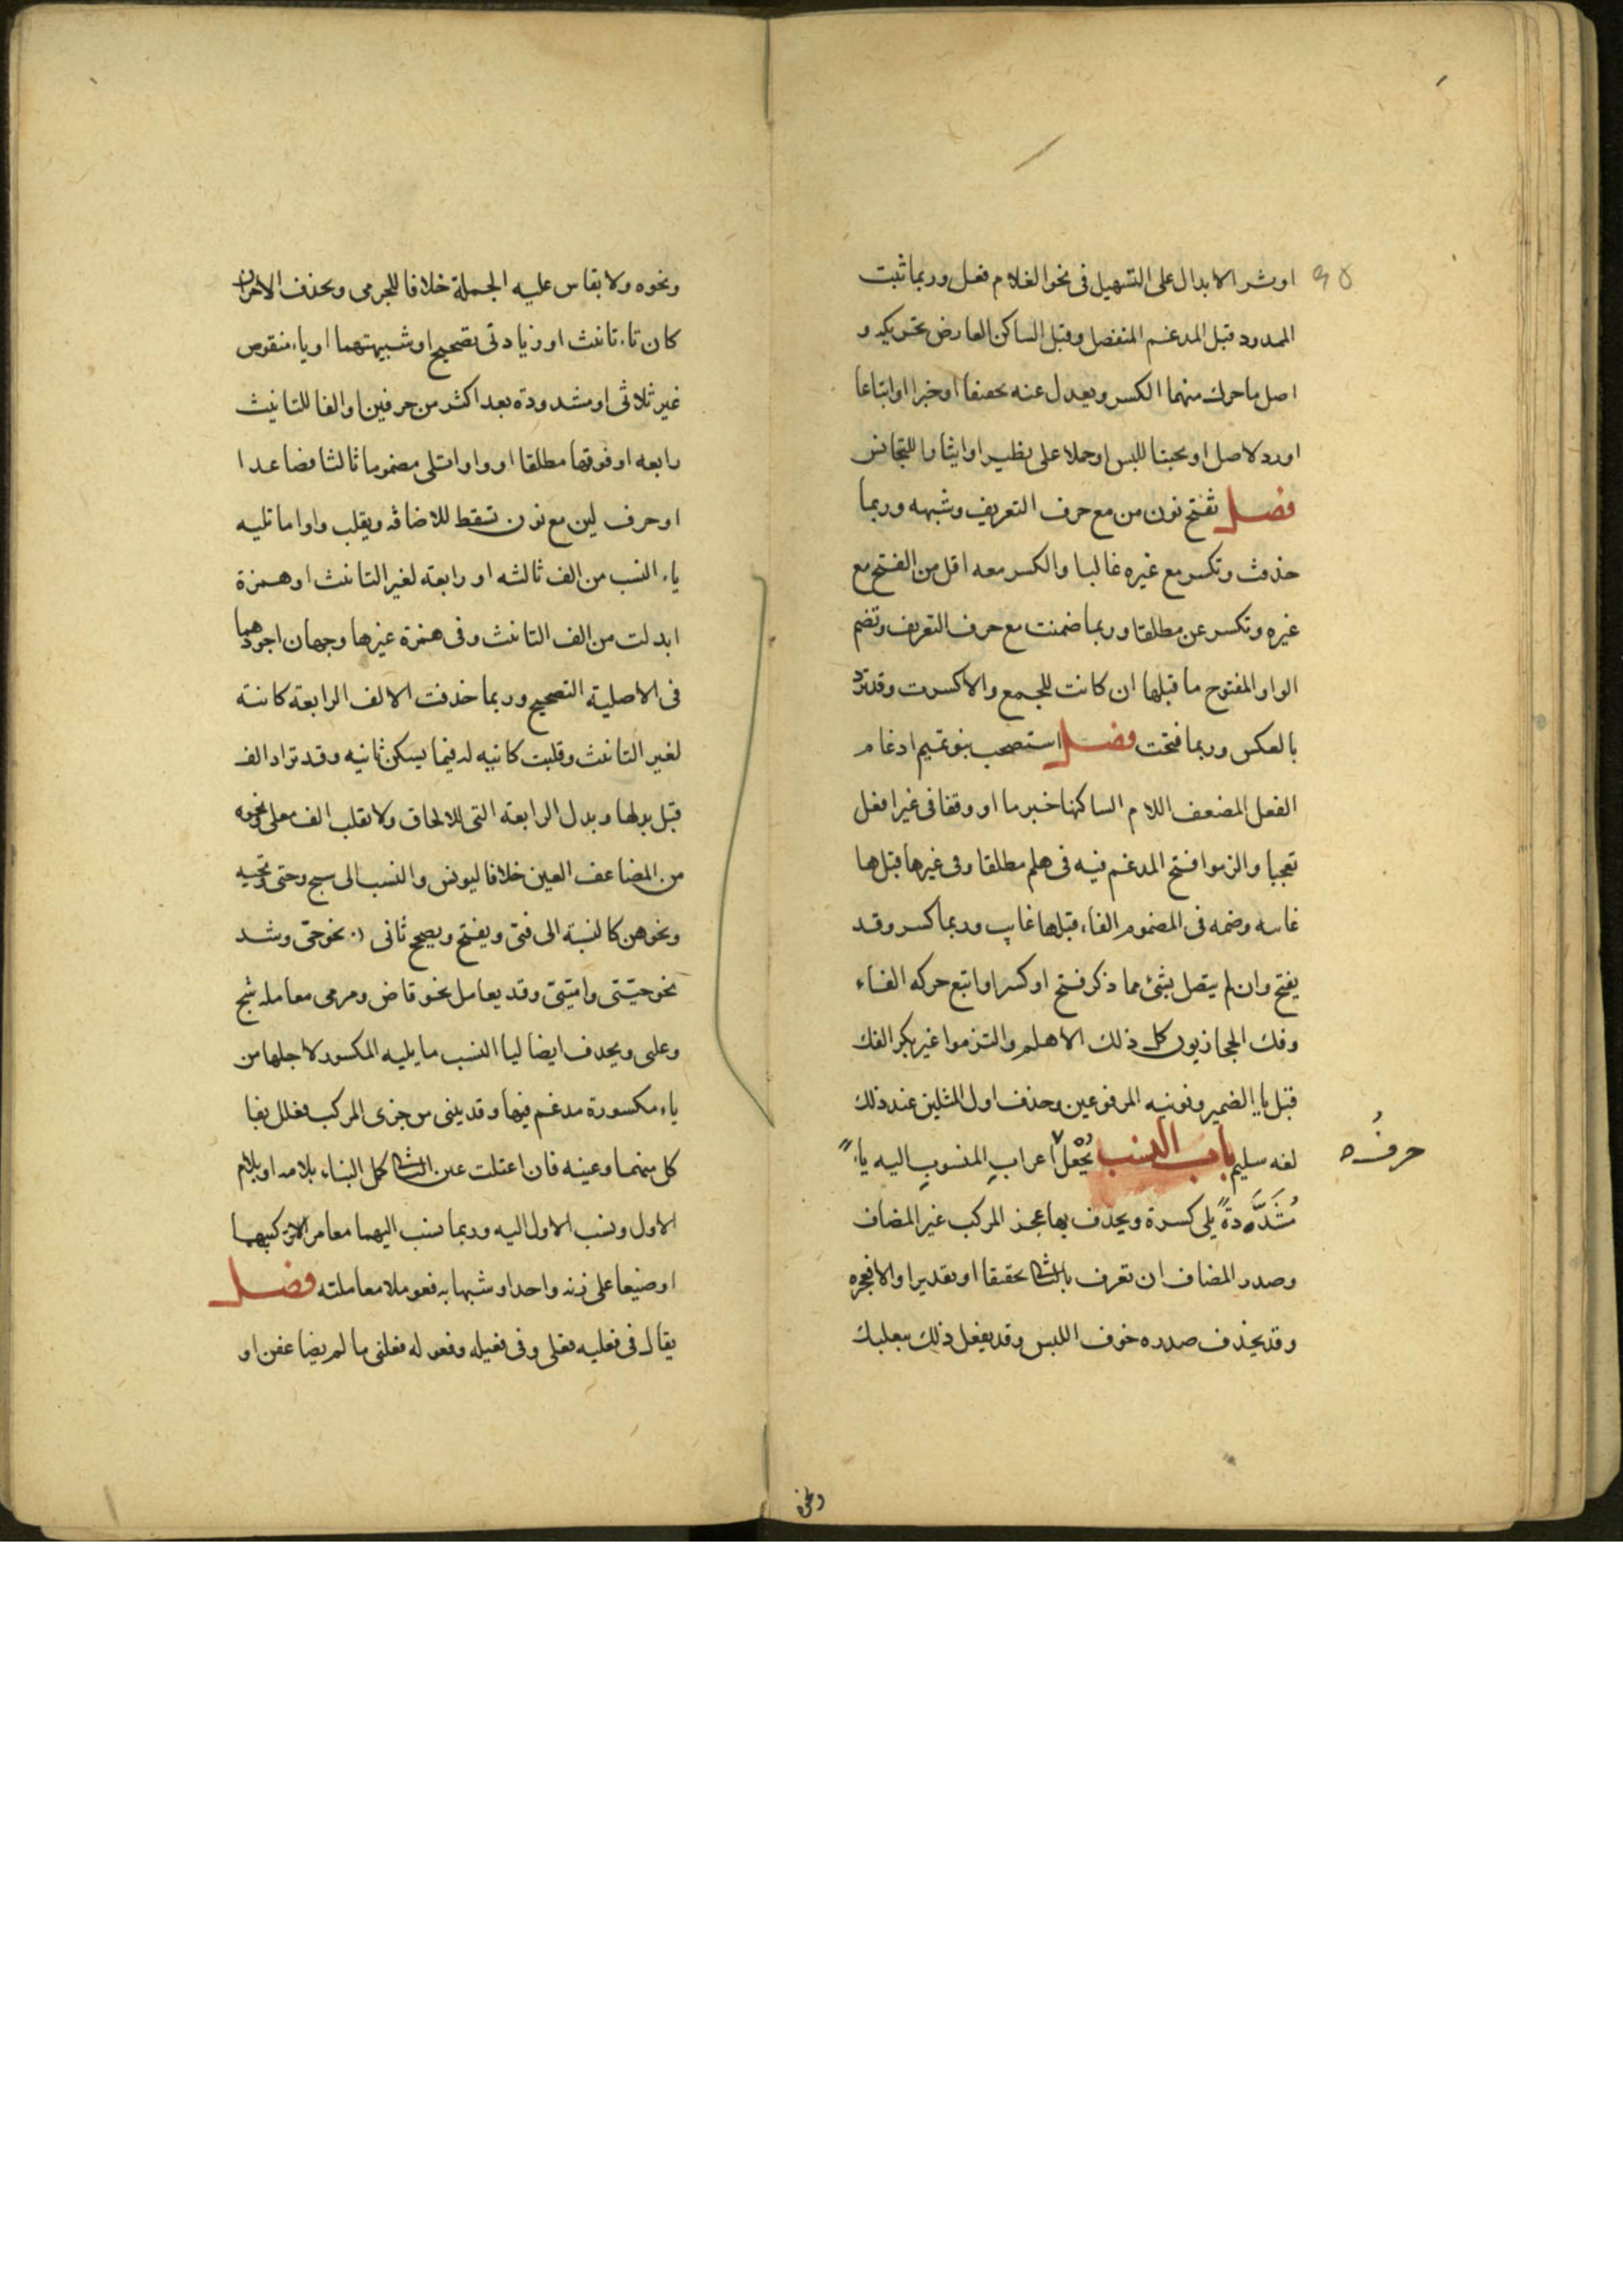 اوثر الابدال على التسهيل فى نحو الغلام فعل وربما ثبت
الممدود قبل المدغم المنفصل وقبل الساكن العارض تحريكه و
اصل ما حرك منهما الكسر ويعدل عنه تحفيفا او خبرا او اتباعا
او رد لاصل او تجنبا للبس او حملا على نظير او ايثارا للتجانس
فصل تفتح نون من مع حرف التعريف وشبهه وربما
حذفت وتكسر مع غيره غالبا والكسر معه اقل من الفتح مع
غيره وتكسر عن مطلقا وربما ضمنت مع حرف التعريف وتضم
الواو المفتوح ما قبلها ان كانت للجمع والا كسرت وقد ترد
بالعكس وربما فتحت فصل استصحب بنو تميم ادغام
الفعل المضعف اللام الساكنها خبر ما او وقفا فى غير افعل
تعجبا والزموا فتح المدغم فيه فى هلم مطلقا وفى غيرها قبل ها
غاىبه وضمه فى المضموم الفاء قبلها غايب وربما كسر وقد
يفتح وان لم يتصل بشئ مما ذكر فتح او كسر او اتبع حركه الفاء
وفك الحجازيون كل ذلك الا هلم والتزموا غير بكر الفك
قبل يا الضمير ونونيه المرفوعين وحذف اول المثلين عند ذلك
لغه سليم باب النسب يُجْعَلُ اعراب المنسوب اليه ياءً
حرفُه
مُشَدَّدةً يلى كسرة ويحذف بها عجز المركب غير المضاف
وصدر المضاف ان تعرف بالثانى تحقيقا او تقديرا والا فعجزه
وقد يحذف صدره خوف اللبس وقد يفعل ذلك ببعلبك
ونحوه
ونحوه ولا يقاس عليه الجملة خلافا للجرمى ويحذف الاخر ان
كان تاء تانث او زيادتى تصحيح او شبيهتهما او ياء منقوص
غير ثلاثى او مشدودة بعد اكثر من حرفين او الفا للتانيث
رابعه او فوقها مطلقا او واوا تلى مضموما ثالثا فصاعدا
او حرف لين مع نون تسقط للاضافه ويقلب واوا ما تليه
ياء النسب من الف ثالثه او رابعة لغير التانث او همزة
ابدلت من الف التانث وفى همزة غيرها وجهان اجودهما
فى الاصلية التصحيح وربما حذفت الالف الرابعة كائنة
لغير التانث وقلبت كائنه له فيما يسكن ثانيه وقد تزاد الف
قبل بدلها وبدل الرابعة التى للالحاق ولا تقلب الف معلى ونحوه
من المضاعف العين خلافا ليونس والنسب الى شج وحتى وتحيه
ونحوهن كالنسبة الى فتى ويفتح ويصحح ثانى نحو حتى وشد
نحو حيتى واميتى وقد يعامل نحو قاض ومرمى معاملة شج
وعلى ويحذف ايضا ليا النسب ما يليه المكسور لاجلها من
ياء مكسورة مدغم فيها وقد يبنى من جزى المركب فعلل بفا
كل منهما وعينه فان اعتلت عين الثانى كمل البناء بلامه او بلام
الاول ونسب الاول اليه وربما نسب اليهما معا من الا تركيبهما
او صيغا على زنه واحد او شبها به فعوملا معاملته فصل
يقال فى فعليه فعلى وفى فعيله وفعوله فعلى ما لم يضاعفن او